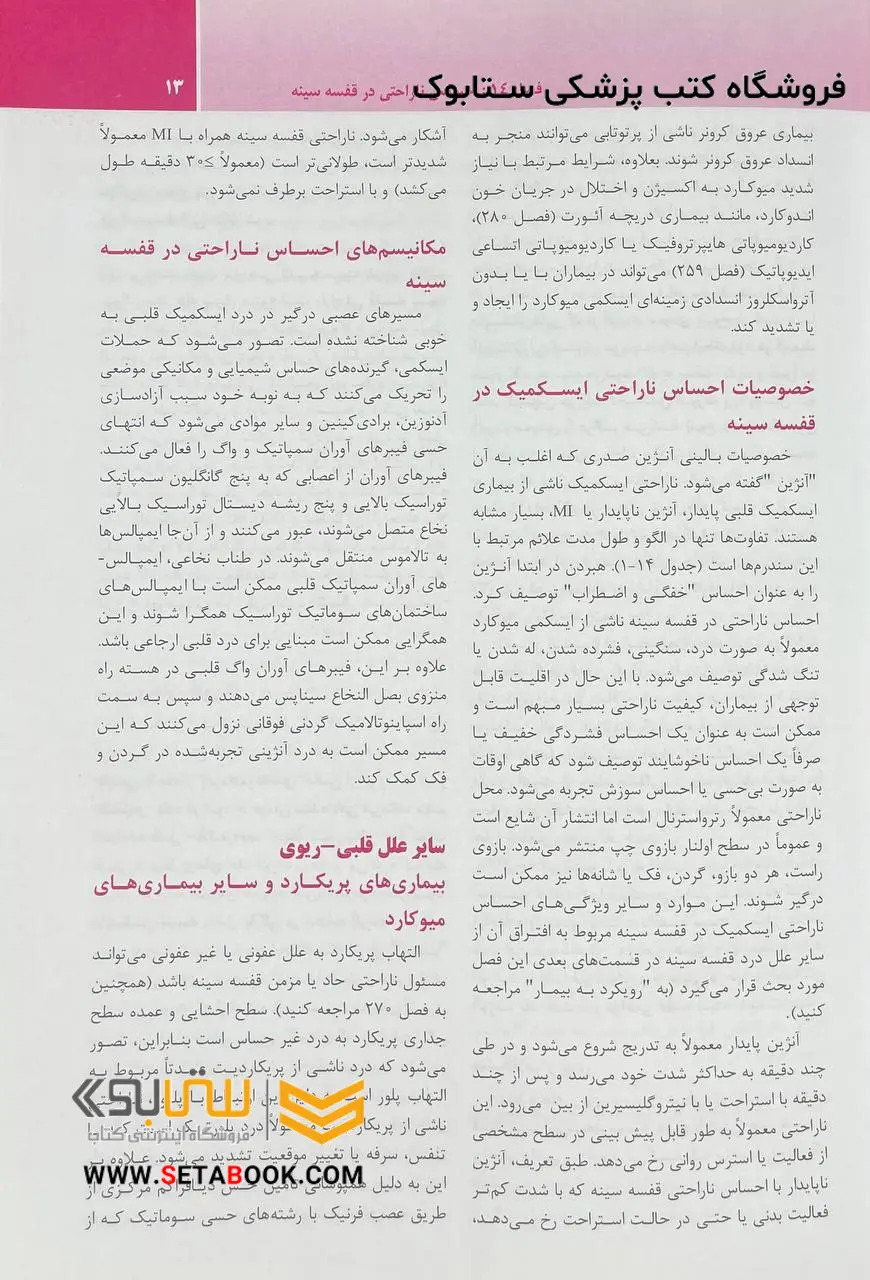 فروشگاه کتب پزشکی ستابوک
ناراحتی در قفسه سینه
۱۳
بیماری عروق کرونر ناشی از پرتوتابی می‌توانند منجر به
انسداد عروق کرونر شوند. بعلاوه، شرایط مرتبط با نیاز
شدید میوکارد به اکسیژن و اختلال در جریان خون
اندوکارد، مانند بیماری دریچه آئورت (فصل ۲۸۰)،
کاردیومیوپاتی هایپرتروفیک یا کاردیومیوپاتی اتساعی
ایدیوپاتیک (فصل ۲۵۹) می‌تواند در بیماران با یا بدون
آترواسکلروز انسدادی زمینه‌ای ایسکمی میوکارد را ایجاد و
یا تشدید کند.
خصوصیات احساس ناراحتی ایسکمیک در
قفسه سینه
خصوصیات بالینی آنژین صدری که اغلب به آن
"آنژین "گفته می‌شود. ناراحتی ایسکمیک ناشی از بیماری
ایسکمیک قلبی پایدار، آنژین ناپایدار یا MI، بسیار مشابه
هستند. تفاوت‌ها تنها در الگو و طول مدت علائم مرتبط با
این سندرم‌ها است (جدول ۱۴-۱). هبردن در ابتدا آنژین
را به عنوان احساس "خفگی و اضطراب" توصیف کرد.
احساس ناراحتی در قفسه سینه ناشی از ایسکمی میوکارد
معمولاً به صورت درد، سنگینی، فشرده شدن، له شدن یا
تنگ شدگی توصیف می‌شود. با این حال در اقلیت قابل
توجهی از بیماران، کیفیت ناراحتی بسیار مبهم است و
ممکن است به عنوان یک احساس فشردگی خفیف یا
صرفاً یک احساس ناخوشایند توصیف شود که گاهی اوقات
به صورت بی‌حسی یا احساس سوزش تجربه می‌شود. محل
ناراحتی معمولاً رترواسترنال است اما انتشار آن شایع است
و عموماً در سطح اولنار بازوی چپ منتشر می‌شود. بازوی
راست، هر دو بازو، گردن، فک یا شانه‌ها نیز ممکن است
درگیر شوند. این موارد و سایر ویژگی‌های احساس
ناراحتی ایسکمیک در قفسه سینه مربوط به افتراق آن از
سایر علل درد قفسه سینه در قسمت‌های بعدی این فصل
مورد بحث قرار می‌گیرد (به "رویکرد به بیمار" مراجعه
کنید).
آنژین پایدار معمولاً به تدریج شروع می‌شود و در طی
چند دقیقه به حداکثر شدت خود می‌رسد و پس از چند
دقیقه با استراحت یا با نیتروگلیسیرین از بین می‌رود. این
ناراحتی معمولاً به طور قابل پیش بینی در سطح مشخصی
از فعالیت یا استرس روانی رخ می‌دهد. طبق تعریف، آنژین
ناپایدار با احساس ناراحتی قفسه سینه که با شدت کم‌تر
فعالیت بدنی یا حتی در حالت استراحت رخ می‌دهد،
آشکار می‌شود. ناراحتی قفسه سینه همراه با MI معمولاً
شدیدتر است، طولانی‌تر است (معمولاً ≥۳۰ دقیقه طول
می‌کشد) و با استراحت برطرف نمی‌شود.
مکانیسم‌های احساس ناراحتی در قفسه
سینه
مسیرهای عصبی درگیر در درد ایسکمیک قلبی به
خوبی شناخته نشده است. تصور می‌شود که حملات
ایسکمی، گیرنده‌های حساس شیمیایی و مکانیکی موضعی
را تحریک می‌کنند که به نوبه خود سبب آزادسازی
آدنوزین، برادی‌کینین و سایر موادی می‌شود که انتهای
حسی فیبرهای آوران سمپاتیک و واگ را فعال می‌کنند.
فیبرهای آوران از اعصابی که به پنج گانگلیون سمپاتیک
توراسیک بالایی و پنج ریشه دیستال توراسیک بالایی
نخاع متصل می‌شوند، عبور می‌کنند و از آن‌جا ایمپالس‌ها
به تالاموس منتقل می‌شوند. در طناب نخاعی، ایمپالس-
های آوران سمپاتیک قلبی ممکن است با ایمپالس‌های
ساختمان‌های سوماتیک توراسیک همگرا شوند و این
همگرایی ممکن است مبنایی برای درد قلبی ارجاعی باشد.
علاوه بر این، فیبرهای آوران واگ قلبی در هسته راه
منزوی بصل النخاع سیناپس می‌دهند و سپس به سمت
راه اسپاینوتالامیک گردنی فوقانی نزول می‌کنند که این
مسیر ممکن است به درد آنژینی تجربه‌شده در گردن و
فک کمک کند.
سایر علل قلبی-ریوی
بیماری‌های پریکارد و سایر بیماری‌های
میوکارد
التهاب پریکارد به علل عفونی یا غیر عفونی می‌تواند
مسئول ناراحتی حاد یا مزمن قفسه سینه باشد (همچنین
به فصل ۲۷۰ مراجعه کنید). سطح احشایی و عمده سطح
جداری پریکارد به درد غیر حساس است بنابراین، تصور
می‌شود که درد ناشی از پریکاردیت عمدتاً مربوط به
التهاب پلور است
ناشی از پریکاردیت معمولاً درد
تنفس، سرفه یا تغییر موقعیت تشدید می‌شود. علاوه بر
این به دلیل همپوشانی تامین حس دیافراگم مرکزی از
طریق عصب فرنیک با رشته‌های حسی سوماتیک که از
ستابوک
فروشگاه اینترنتی کتاب
WWW.SETABOOK.COM